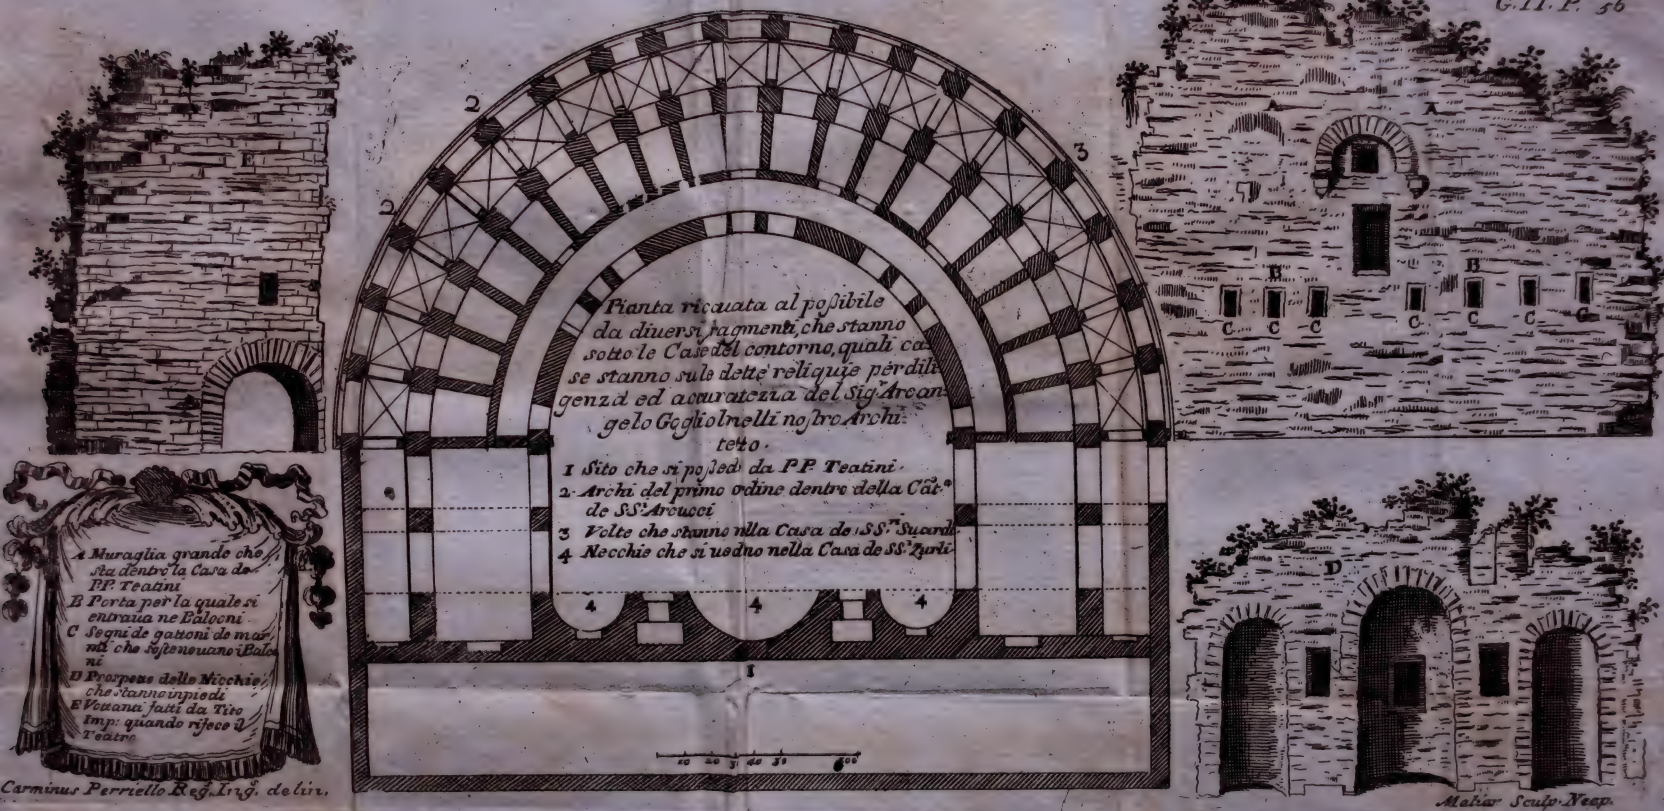 G. II. P. 56
2
2
3
A A
B B
C C C C C C G
Pianta ricauata al poßibile
da diuersi fragmenti, che stanno
sotto le Case del contorno, quali ca
se stanno sule dette reliquie per dili
genza ed accuratezza del Sig.r Arcan-
gelo Gogliolmelli nostro Archi-
tetto.
1 Sito che si poßed. da P.P. Teatini.
2. Archi del primo ordine dentro della Cas.a
de SS.i Arcucci
3 Volte che stanno nlla Casa de SS.ri Suardi
4 Necchie che si uedno nella Casa de SS.i Zurli
4 4 4
1
10 20 3 40 50 600
A Muraglia grande che
sta dentro la Casa de
P.P. Teatini
B Porta per la quale si
entraua ne Balconi
C Segni de gattoni de mar
mi che sostenouano i Balco
ni
D Prospetto delle Nicchie
che stanno in piedi
E Vottanti fatti da Tito
Imp: quando rifece il
Teatro
D
Carminus Perriello Reg. Ing. delin.
Maliar Sculp. Neap.